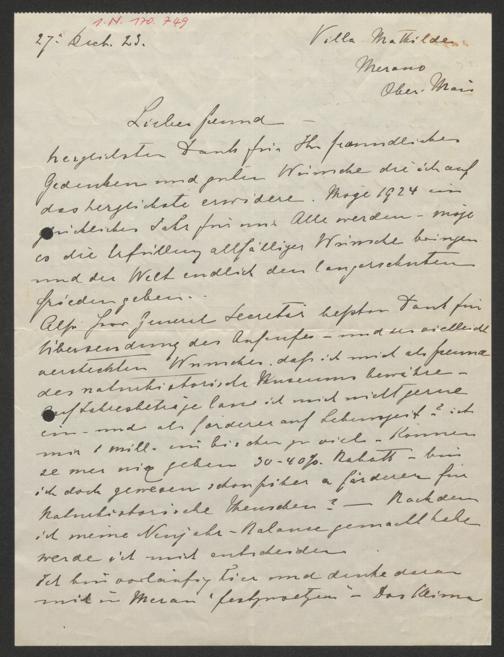 I.N. 170.749
27. Dech. 23.
Villa Mathilde
Merano
Ober-Mais
Lieber Freund —
herzlichsten Dank für Ihr freundliches
Gedenken und guten Wünsche die ich auf
das herzlichste erwidere. Möge 1924 ein
glückliches Jahr für uns Alle werden – möge
es die Erfüllung allfälliger Wünsche bringen
und der Welt endlich den langersehnten
Frieden geben.
Also Herr General Secretär besten Dank für
Übersendung des Aufrufes – und des vielleicht
versteckten Wunsches, daß ich mich als Freund
des naturhistorische Museums bewähre –
auf Jahresbeträge lasse ich mich nicht gerne
ein – und als Förderer auf Lebenszeit? ist
mir 1 Mill. ein bischen zu viel – Können
se mer nix geben 30-40% Rabatt – bin
ich doch gewesen schon früher a Förderer für
Naturhistorische Menschen? — Nachdem
ich meine Neujahr-Balance gemacht habe
werde ich mich entscheiden
Ich bin vorläufig hier und denke daran
mich in Meran "festzusetzen" – Das Klima